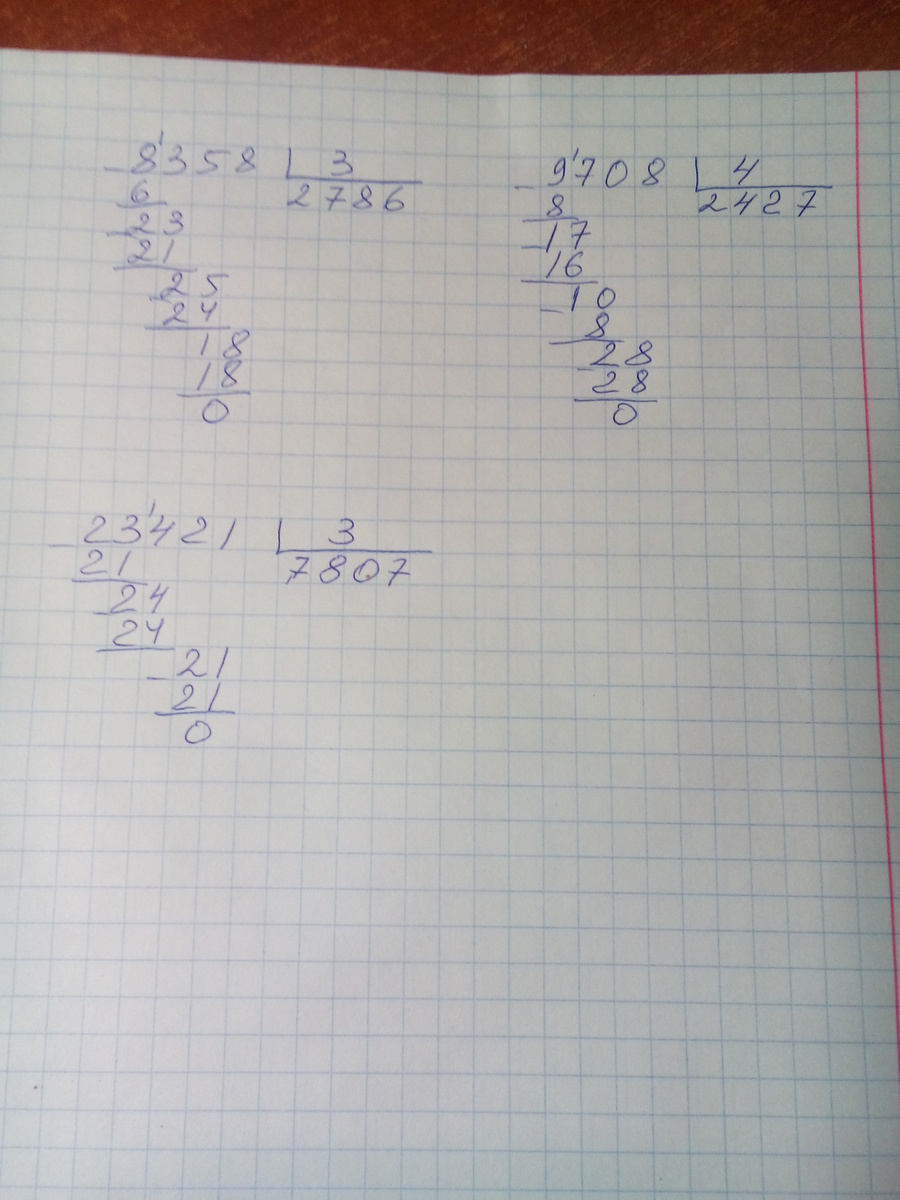 8'358 3
2786
6
23
21
25
24
18
18
0
9'708 4
2427
8
17
16
10
8
28
28
0
23'421 3
7807
21
24
24
21
21
0